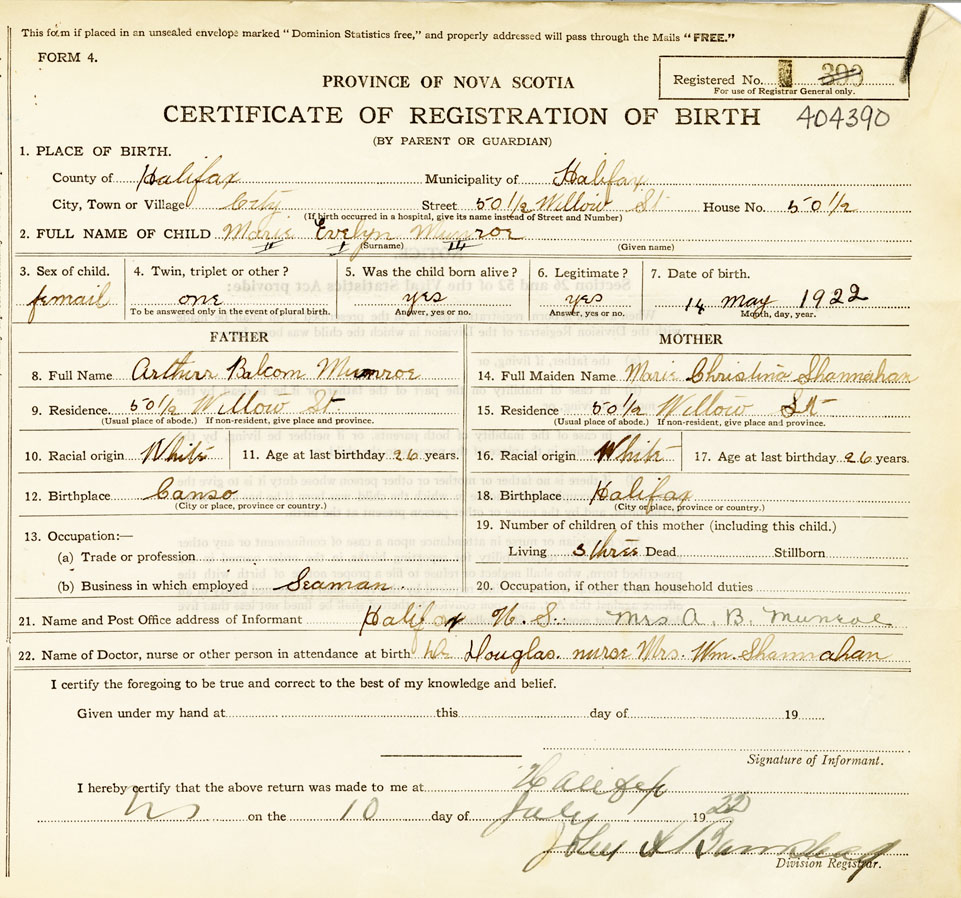 This form if placed in an unsealed envelope marked "Dominion Statistics free," and properly addressed will pass through the Mails "FREE."
FORM 4.
Registered No. 390
For use of Registrar General only.
PROVINCE OF NOVA SCOTIA
CERTIFICATE OF REGISTRATION OF BIRTH 404390
(BY PARENT OR GUARDIAN)
1. PLACE OF BIRTH.
County of Halifax Municipality of Halifax
City, Town or Village City Street 50 1/2 Willow St House No. 50 1/2
(If birth occurred in a hospital, give its name instead of Street and Number)
2. FULL NAME OF CHILD Marie Evelyn Munroe
(Surname) (Given name)
3. Sex of child. 4. Twin, triplet or other? 5. Was the child born alive? 6. Legitimate? 7. Date of birth.
femail one yes yes 14 may 1922
To be answered only in the event of plural birth. Answer, yes or no. Answer, yes or no. Month, day, year.
FATHER MOTHER
8. Full Name Arthur Balcom Munroe 14. Full Maiden Name Marie Christina Shannahan
9. Residence. 50 1/2 Willow St. 15. Residence 50 1/2 Willow St
(Usual place of abode.) If non-resident, give place and province. (Usual place of abode.) If non-resident, give place and province.
10. Racial origin White 11. Age at last birthday 26 years. 16. Racial origin White 17. Age at last birthday 26 years.
12. Birthplace Canso 18. Birthplace Halifax
(City or place, province or country.) (City or place, province or country.)
13. Occupation:— 19. Number of children of this mother (including this child.)
(a) Trade or profession Living 3 three Dead Stillborn
(b) Business in which employed Seaman. 20. Occupation, if other than household duties
21. Name and Post Office address of Informant Halifax N. S. Mrs A. B. Munroe
22. Name of Doctor, nurse or other person in attendance at birth Dr Douglas. nurse Mrs. Wm. Shannahan
I certify the foregoing to be true and correct to the best of my knowledge and belief.
Given under my hand at this day of 19
Signature of Informant.
I hereby certify that the above return was made to me at Halifax
NS on the 10 day of July 1922
John A
Division Registrar.